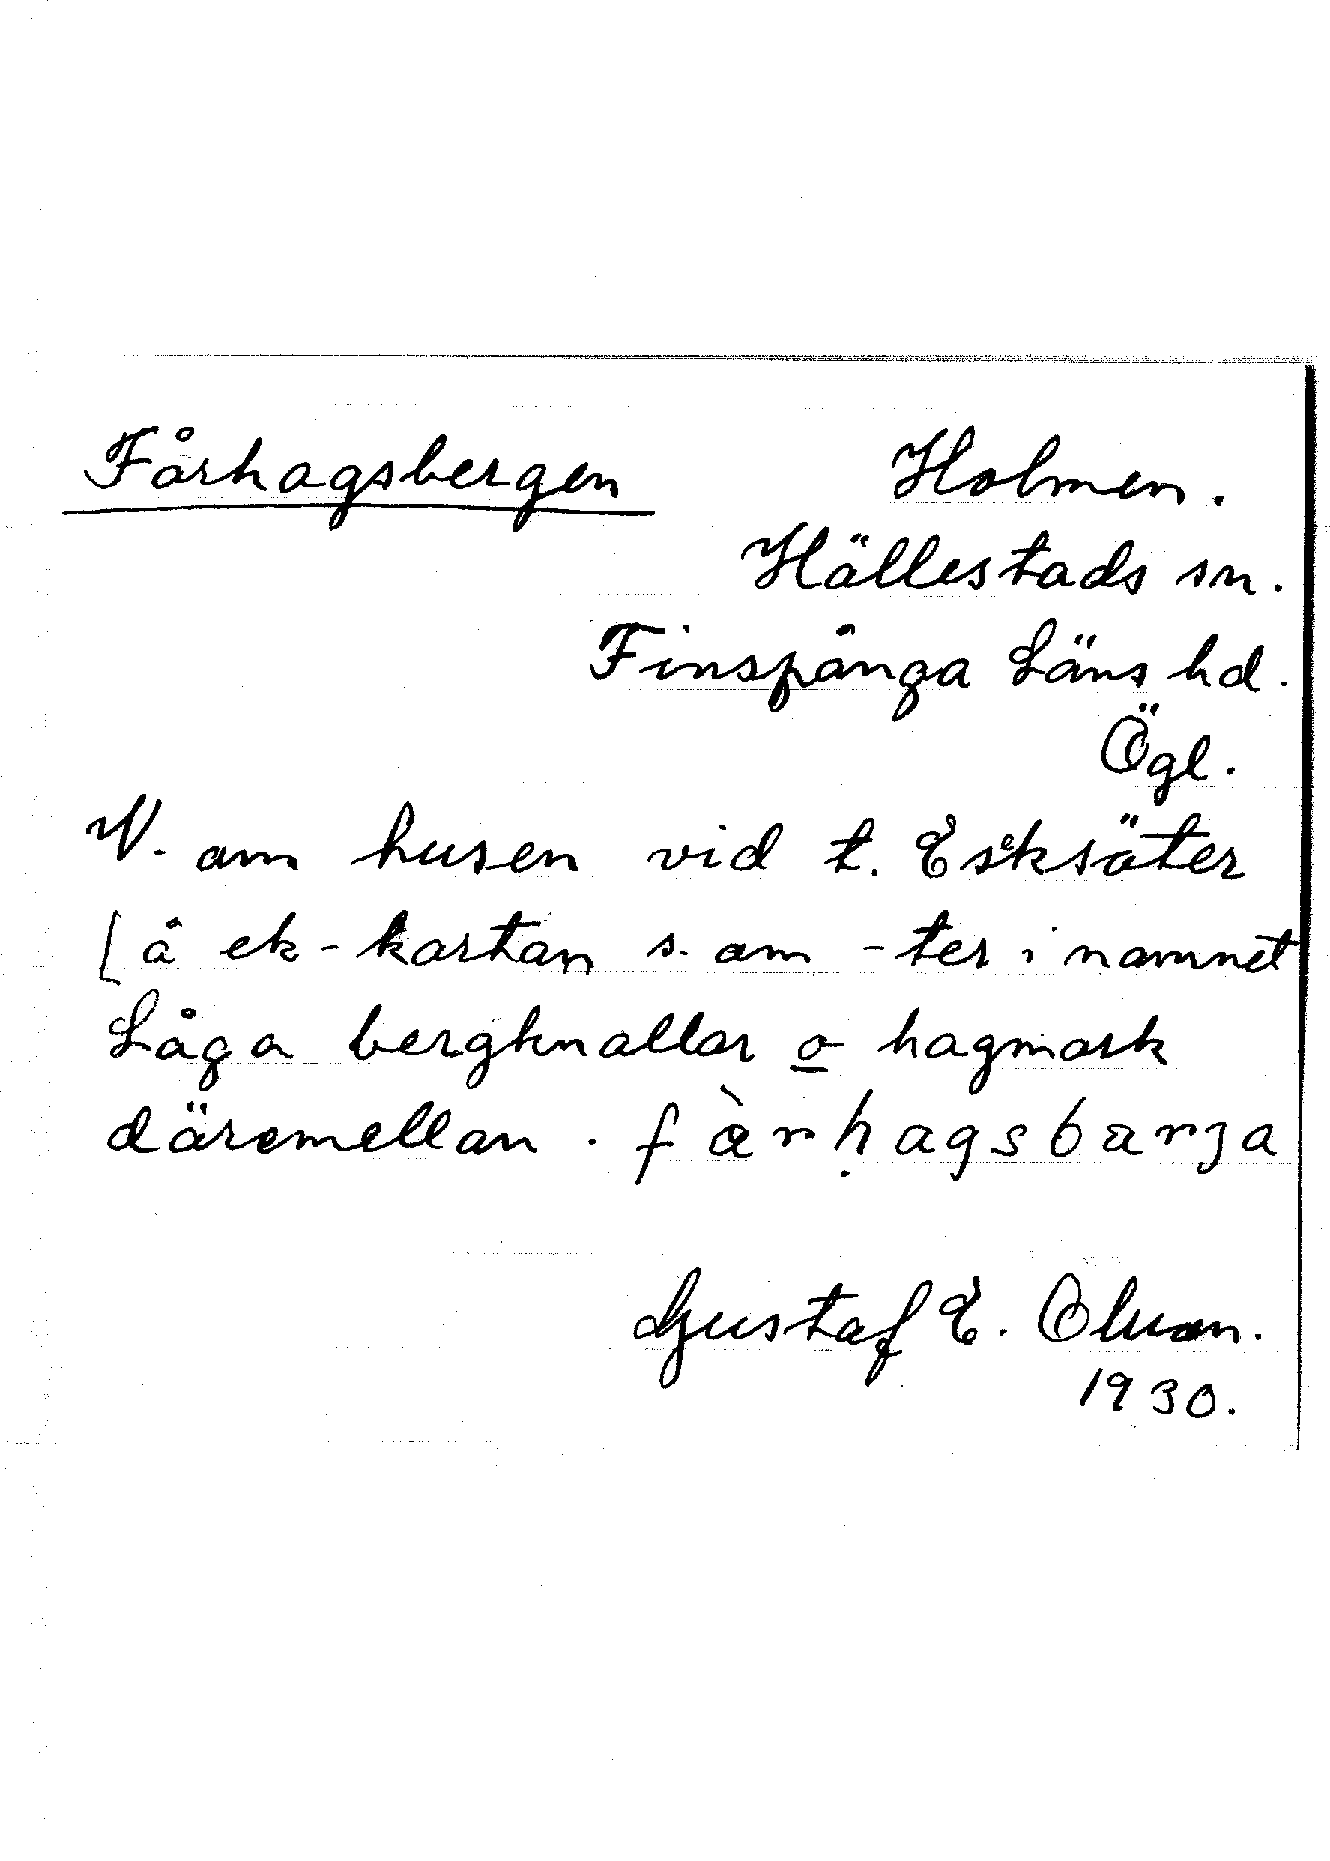 Fårhagsbergen Holmen.
Hällestads sn.
Finspånga Läns hd.
Ögl.
V. om husen vid t. Esksäter
[å ek-kartan s. om -ter i namnet
Låga bergknallar o hagmark
däremellan. fàrḥagsbarʒa
Gustaf E. Olson.
1930.